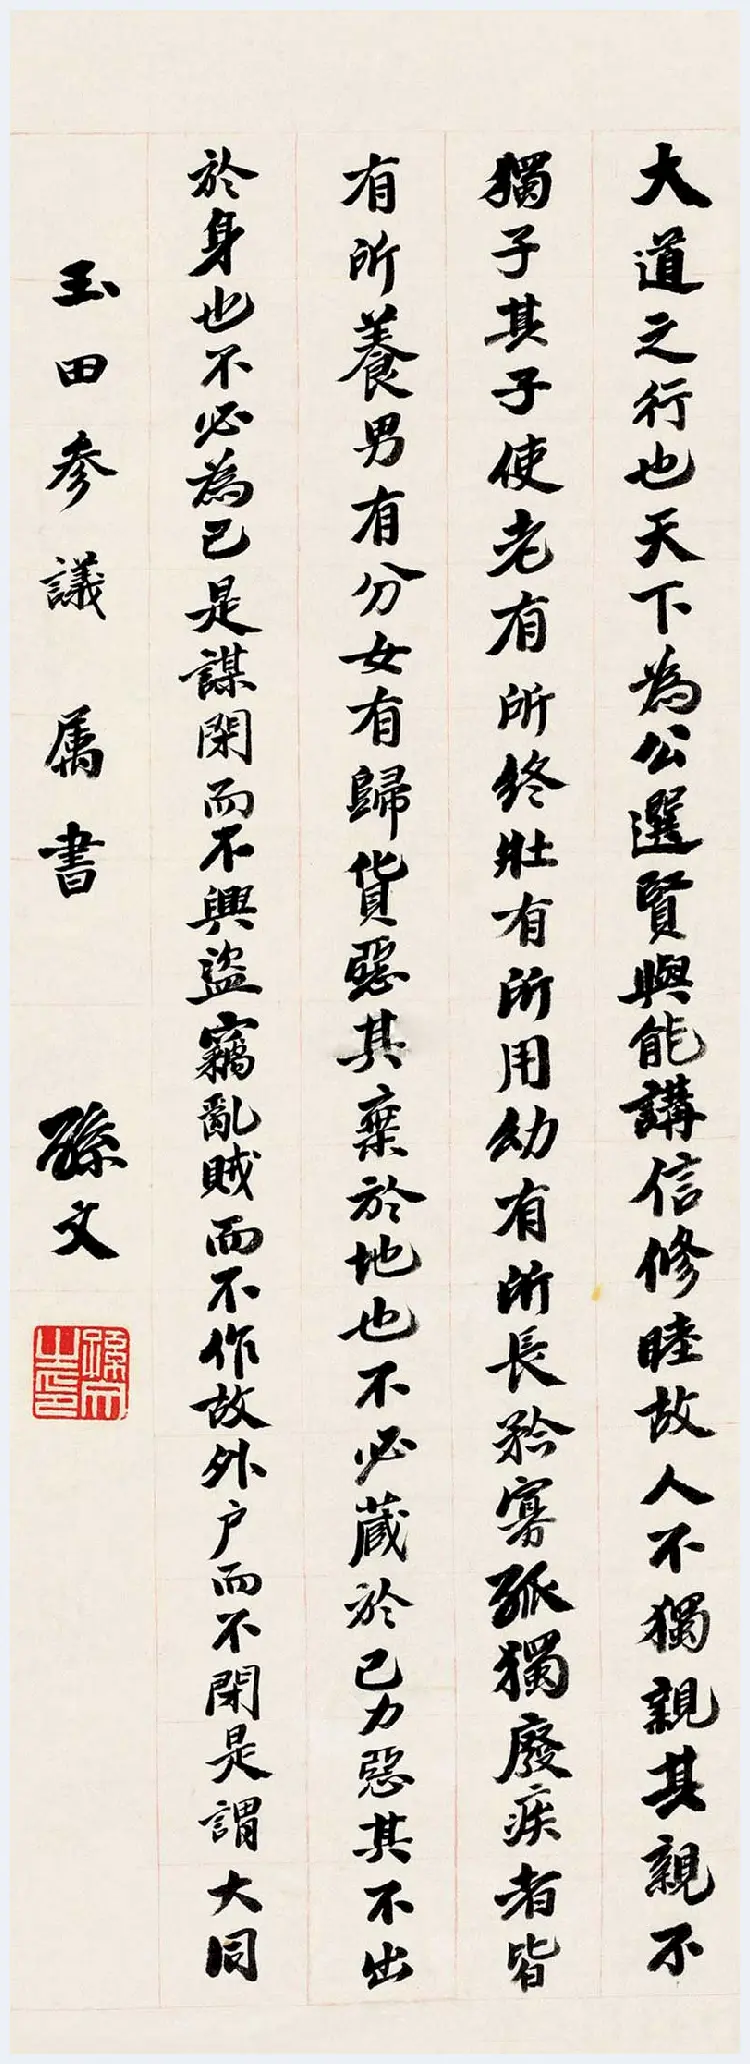 大道之行也天下為公選賢與能講信修睦故人不獨親其親不
獨子其子使老有所終壯有所用幼有所長矜寡孤獨廢疾者皆
有所養男有分女有歸貨惡其棄於地也不必藏於己力惡其不出
於身也不必為己是謀閉而不興盜竊亂賊而不作故外户而不閉是謂大同
玉田參議 属書 孫文
孫文之印